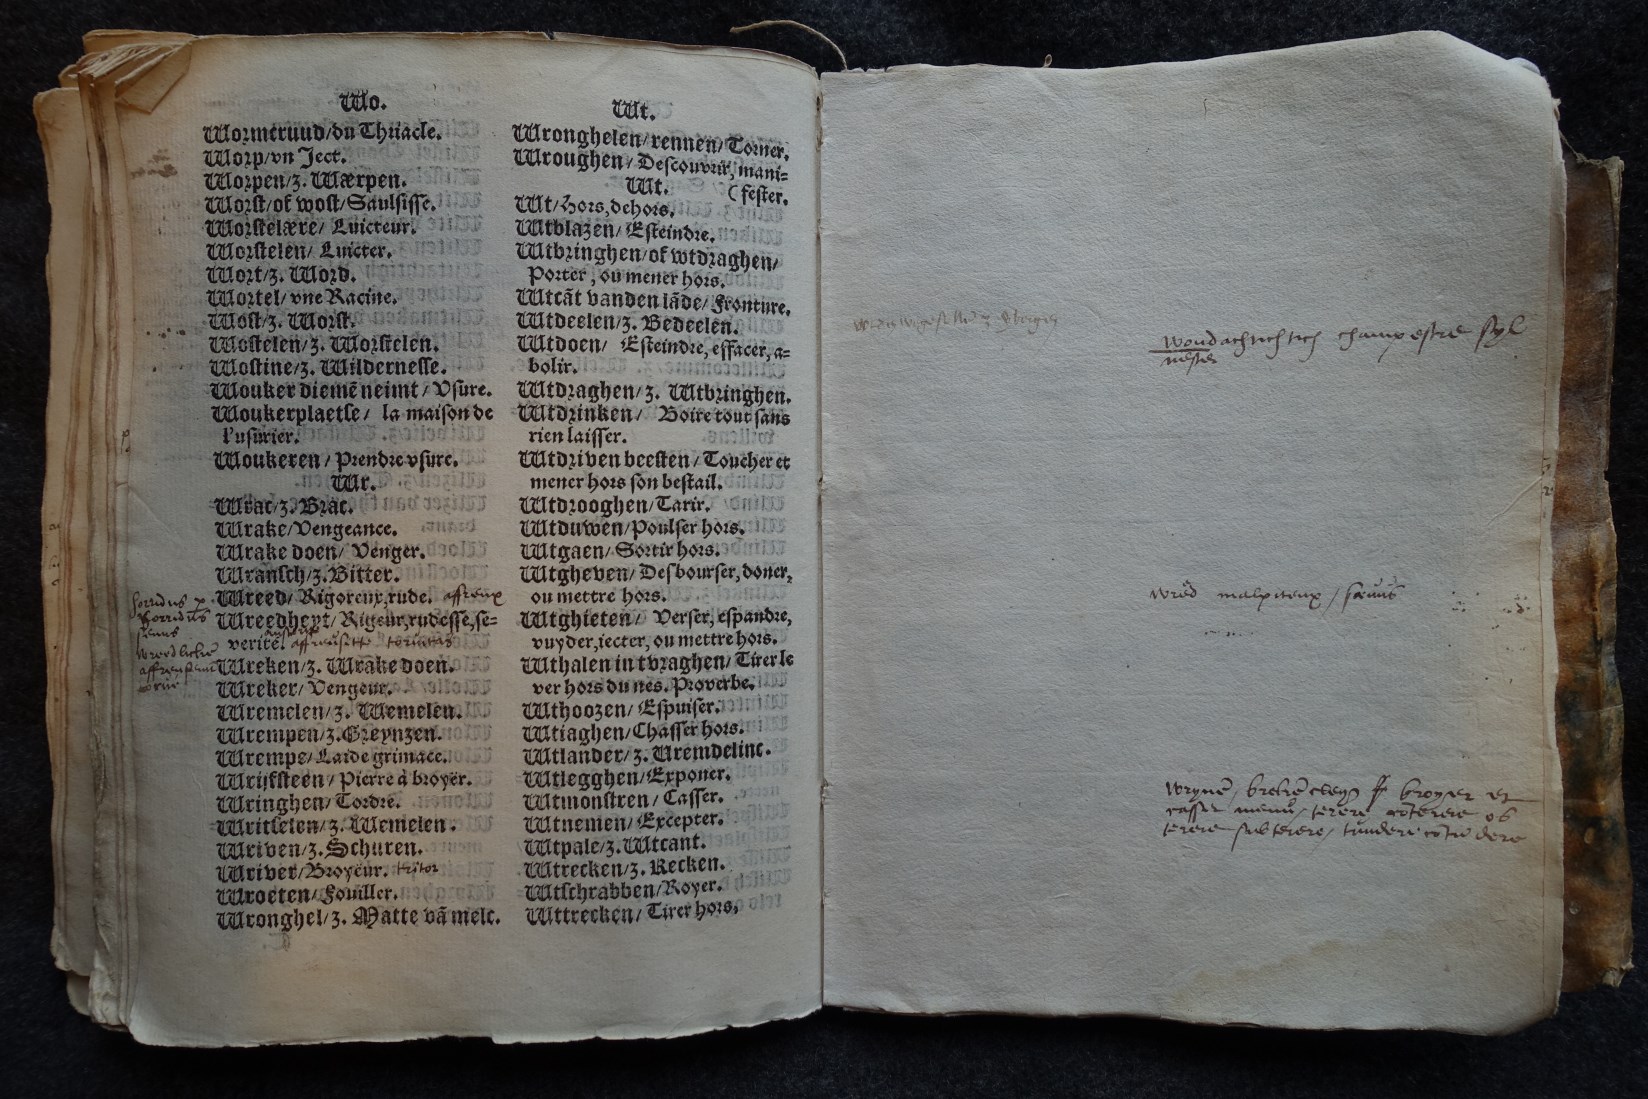 Wo.
Wormcruud/du Thriacle.
Worp/vn Ject.
Worpen/z. Wærpen.
Worst/of wost/Saulsisse.
Worstelære/ Luicteur.
Worstelen/ Luicter.
Wort/z. Word.
Wortel/vne Racine.
Wost/z. Worst.
Wostelen/z. Worstelen.
Wostine/z. Wildernesse.
Wouker diemē neimt/Vsure.
Woukerplaetse/ la maison de
l'usurier.
Woukeren/Prendre vsure.
Wr.
Wrac/z. Brac.
Wrake/Vengeance.
Wrake doen/ Venger.
Wransch/z. Bitter.
Wreed/ Rigoreux, rude. affreux
Wreedheyt/ Rigeur, rudesse, se-
verité.
Wreken/z. Wrake doen.
Wreker/Vengeur.
Wremelen/z. Wemelen.
Wrempen/z. Greynzen.
Wrempe/Laide grimace.
Wrijfsteen/Pierre à broyer.
Wringhen/Tordre.
Writselen/z. Wemelen.
Wriven/z. Schuren.
Wriver/Broyeur. tritor
Wroeten/Fouiller.
Wronghel/z. Matte vā melc.
Wt.
Wronghelen/rennen/Torner.
Wroughen/ Descouvrir, mani=
Wt. (fester.
Wt/hors, dehors.
Wtblazen/ Esteindre.
Wtbringhen/of wtdraghen/
Porter, ou mener hors.
Wtcāt vanden lāde/Fronture.
Wtdeelen/z. Bedeelen.
Wtdoen/ Esteindre, effacer, a-
bolir.
Wtdraghen/z. Wtbringhen.
Wtdrinken/ Boire tout sans
rien laisser.
Wtdriven beesten/Toucher et
mener hors son bestail.
Wtdrooghen/Tarir.
Wtduwen/Poulser hors.
Wtgaen/Sortir hors.
Wtgheven/ Desbourser, doner,
ou mettre hors.
Wtghieten/ Verser, espandre,
vuyder, iecter, ou mettre hors.
Wthalen in tvraghen/Tirer le
ver hors du nes. Proverbe.
Wthoozen/Espuiser.
Wtiaghen/Chasser hors.
Wtlander/z. Uremdelinc.
Wtlegghen/Exponer.
Wtmonstren/Casser.
Wtnemen/Excepter.
Wtpale/z. Wtcant.
Wtrecken/z. Recken.
Wtschrabben/Royer.
Wttrecken/Tirer hors,
woudachtichtich champestre syl
vestre
wreed malpiteux/ sævus
broyer et
casser menu/ terere cōterere ob
terere subterere/ tundere cōtundere